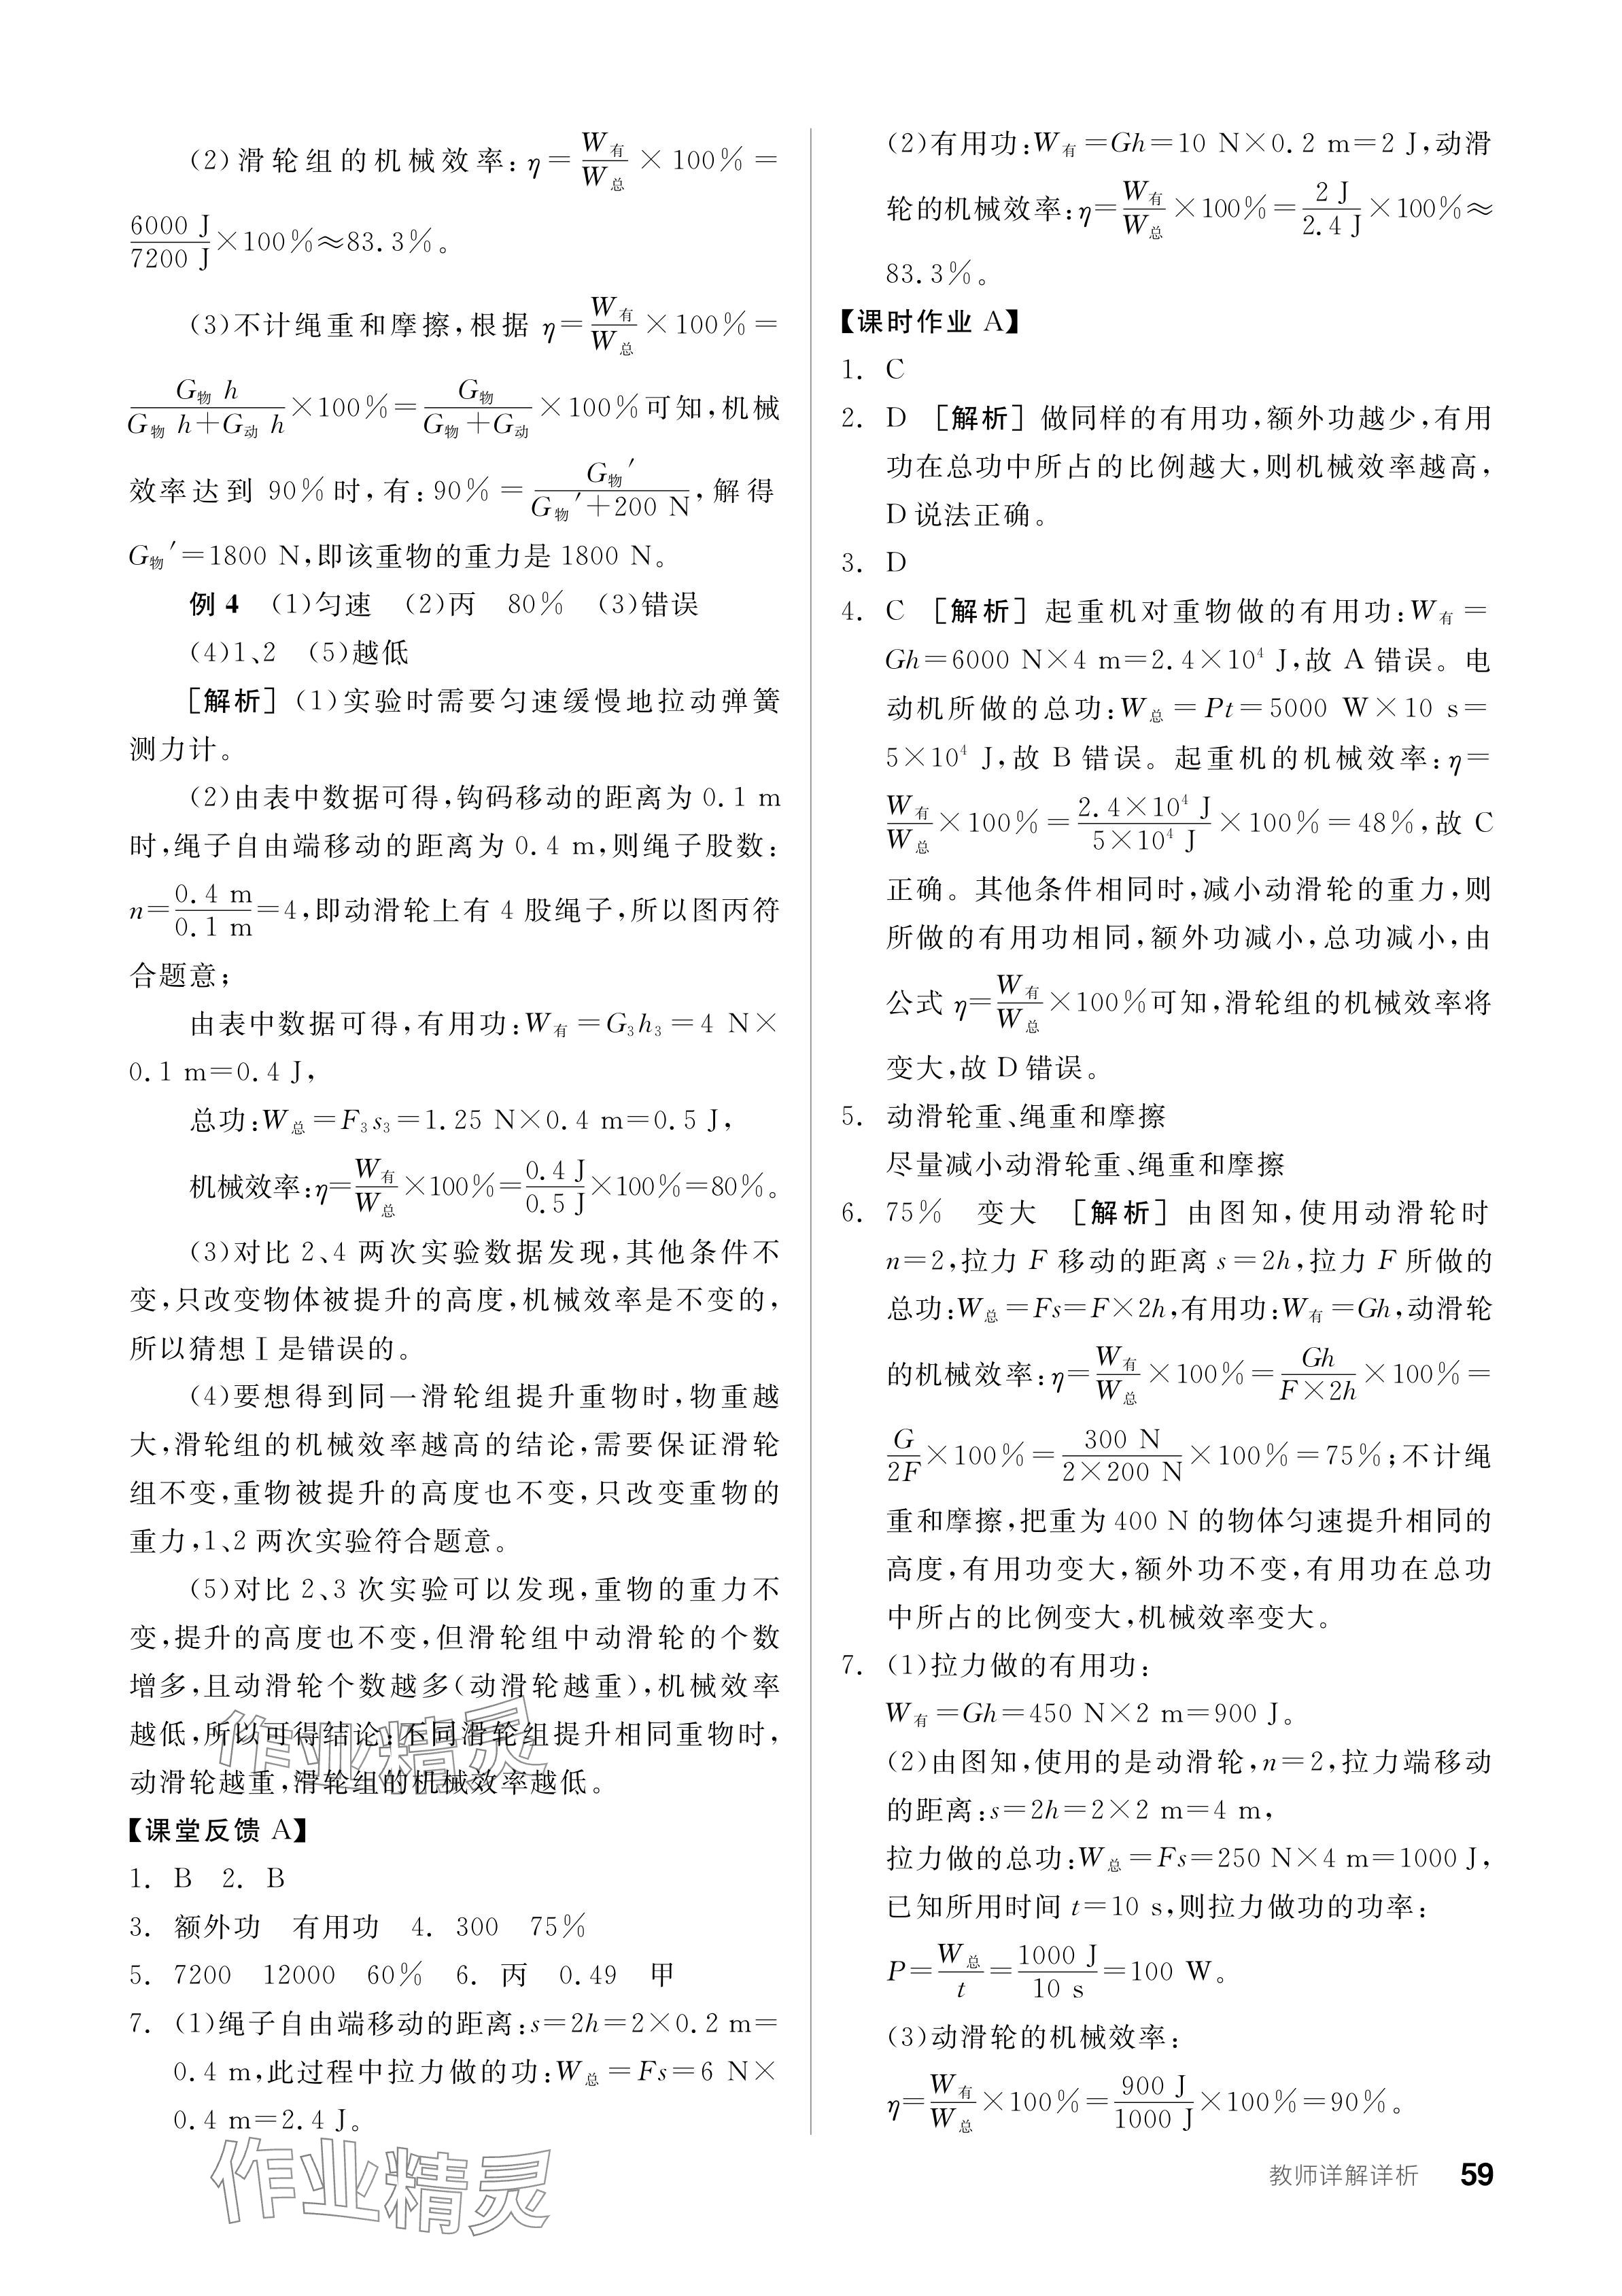 (2)滑轮组的机械效率:η=W有/W总×100%=
6000 J/7200 J×100%≈83.3%。
(3)不计绳重和摩擦,根据 η=W有/W总×100%=
G物 h/(G物 h+G动 h)×100%=G物/(G物+G动)×100%可知,机械
效率达到 90%时,有:90%=G物′/(G物′+200 N),解得
G物′=1800 N,即该重物的重力是 1800 N。
例 4 (1)匀速 (2)丙 80% (3)错误
(4)1、2 (5)越低
[解析] (1)实验时需要匀速缓慢地拉动弹簧
测力计。
(2)由表中数据可得,钩码移动的距离为 0.1 m
时,绳子自由端移动的距离为 0.4 m,则绳子股数:
n=0.4 m/0.1 m=4,即动滑轮上有 4 股绳子,所以图丙符
合题意;
由表中数据可得,有用功:W有=G₃h₃=4 N×
0.1 m=0.4 J,
总功:W总=F₃s₃=1.25 N×0.4 m=0.5 J,
机械效率:η=W有/W总×100%=0.4 J/0.5 J×100%=80%。
(3)对比 2、4 两次实验数据发现,其他条件不
变,只改变物体被提升的高度,机械效率是不变的,
所以猜想Ⅰ是错误的。
(4)要想得到同一滑轮组提升重物时,物重越
大,滑轮组的机械效率越高的结论,需要保证滑轮
组不变,重物被提升的高度也不变,只改变重物的
重力,1、2 两次实验符合题意。
(5)对比 2、3 次实验可以发现,重物的重力不
变,提升的高度也不变,但滑轮组中动滑轮的个数
增多,且动滑轮个数越多(动滑轮越重),机械效率
越低,所以可得结论:不同滑轮组提升相同重物时,
动滑轮越重,滑轮组的机械效率越低。
作业精灵
【课堂反馈 A】
1. B 2. B
3. 额外功 有用功 4. 300 75%
5. 7200 12000 60% 6. 丙 0.49 甲
7. (1)绳子自由端移动的距离:s=2h=2×0.2 m=
0.4 m,此过程中拉力做的功:W总=Fs=6 N×
0.4 m=2.4 J。
作业精灵
(2)有用功:W有=Gh=10 N×0.2 m=2 J,动滑
轮的机械效率:η=W有/W总×100%=2 J/2.4 J×100%≈
83.3%。
【课时作业 A】
1. C
2. D [解析] 做同样的有用功,额外功越少,有用
功在总功中所占的比例越大,则机械效率越高,
D 说法正确。
3. D
4. C [解析] 起重机对重物做的有用功:W有=
Gh=6000 N×4 m=2.4×10⁴ J,故 A 错误。电
动机所做的总功:W总=Pt=5000 W×10 s=
5×10⁴ J,故 B 错误。起重机的机械效率:η=
W有/W总×100%=2.4×10⁴ J/5×10⁴ J×100%=48%,故 C
正确。其他条件相同时,减小动滑轮的重力,则
所做的有用功相同,额外功减小,总功减小,由
公式 η=W有/W总×100%可知,滑轮组的机械效率将
变大,故 D 错误。
5. 动滑轮重、绳重和摩擦
尽量减小动滑轮重、绳重和摩擦
6. 75% 变大 [解析] 由图知,使用动滑轮时
n=2,拉力 F 移动的距离 s=2h,拉力 F 所做的
总功:W总=Fs=F×2h,有用功:W有=Gh,动滑轮
的机械效率:η=W有/W总×100%=Gh/(F×2h)×100%=
G/2F×100%=300 N/(2×200 N)×100%=75%;不计绳
重和摩擦,把重为 400 N 的物体匀速提升相同的
高度,有用功变大,额外功不变,有用功在总功
中所占的比例变大,机械效率变大。
7. (1)拉力做的有用功:
W有=Gh=450 N×2 m=900 J。
(2)由图知,使用的是动滑轮,n=2,拉力端移动
的距离:s=2h=2×2 m=4 m,
拉力做的总功:W总=Fs=250 N×4 m=1000 J,
已知所用时间 t=10 s,则拉力做功的功率:
P=W总/t=1000 J/10 s=100 W。
(3)动滑轮的机械效率:
η=W有/W总×100%=900 J/1000 J×100%=90%。
教师详解详析 59